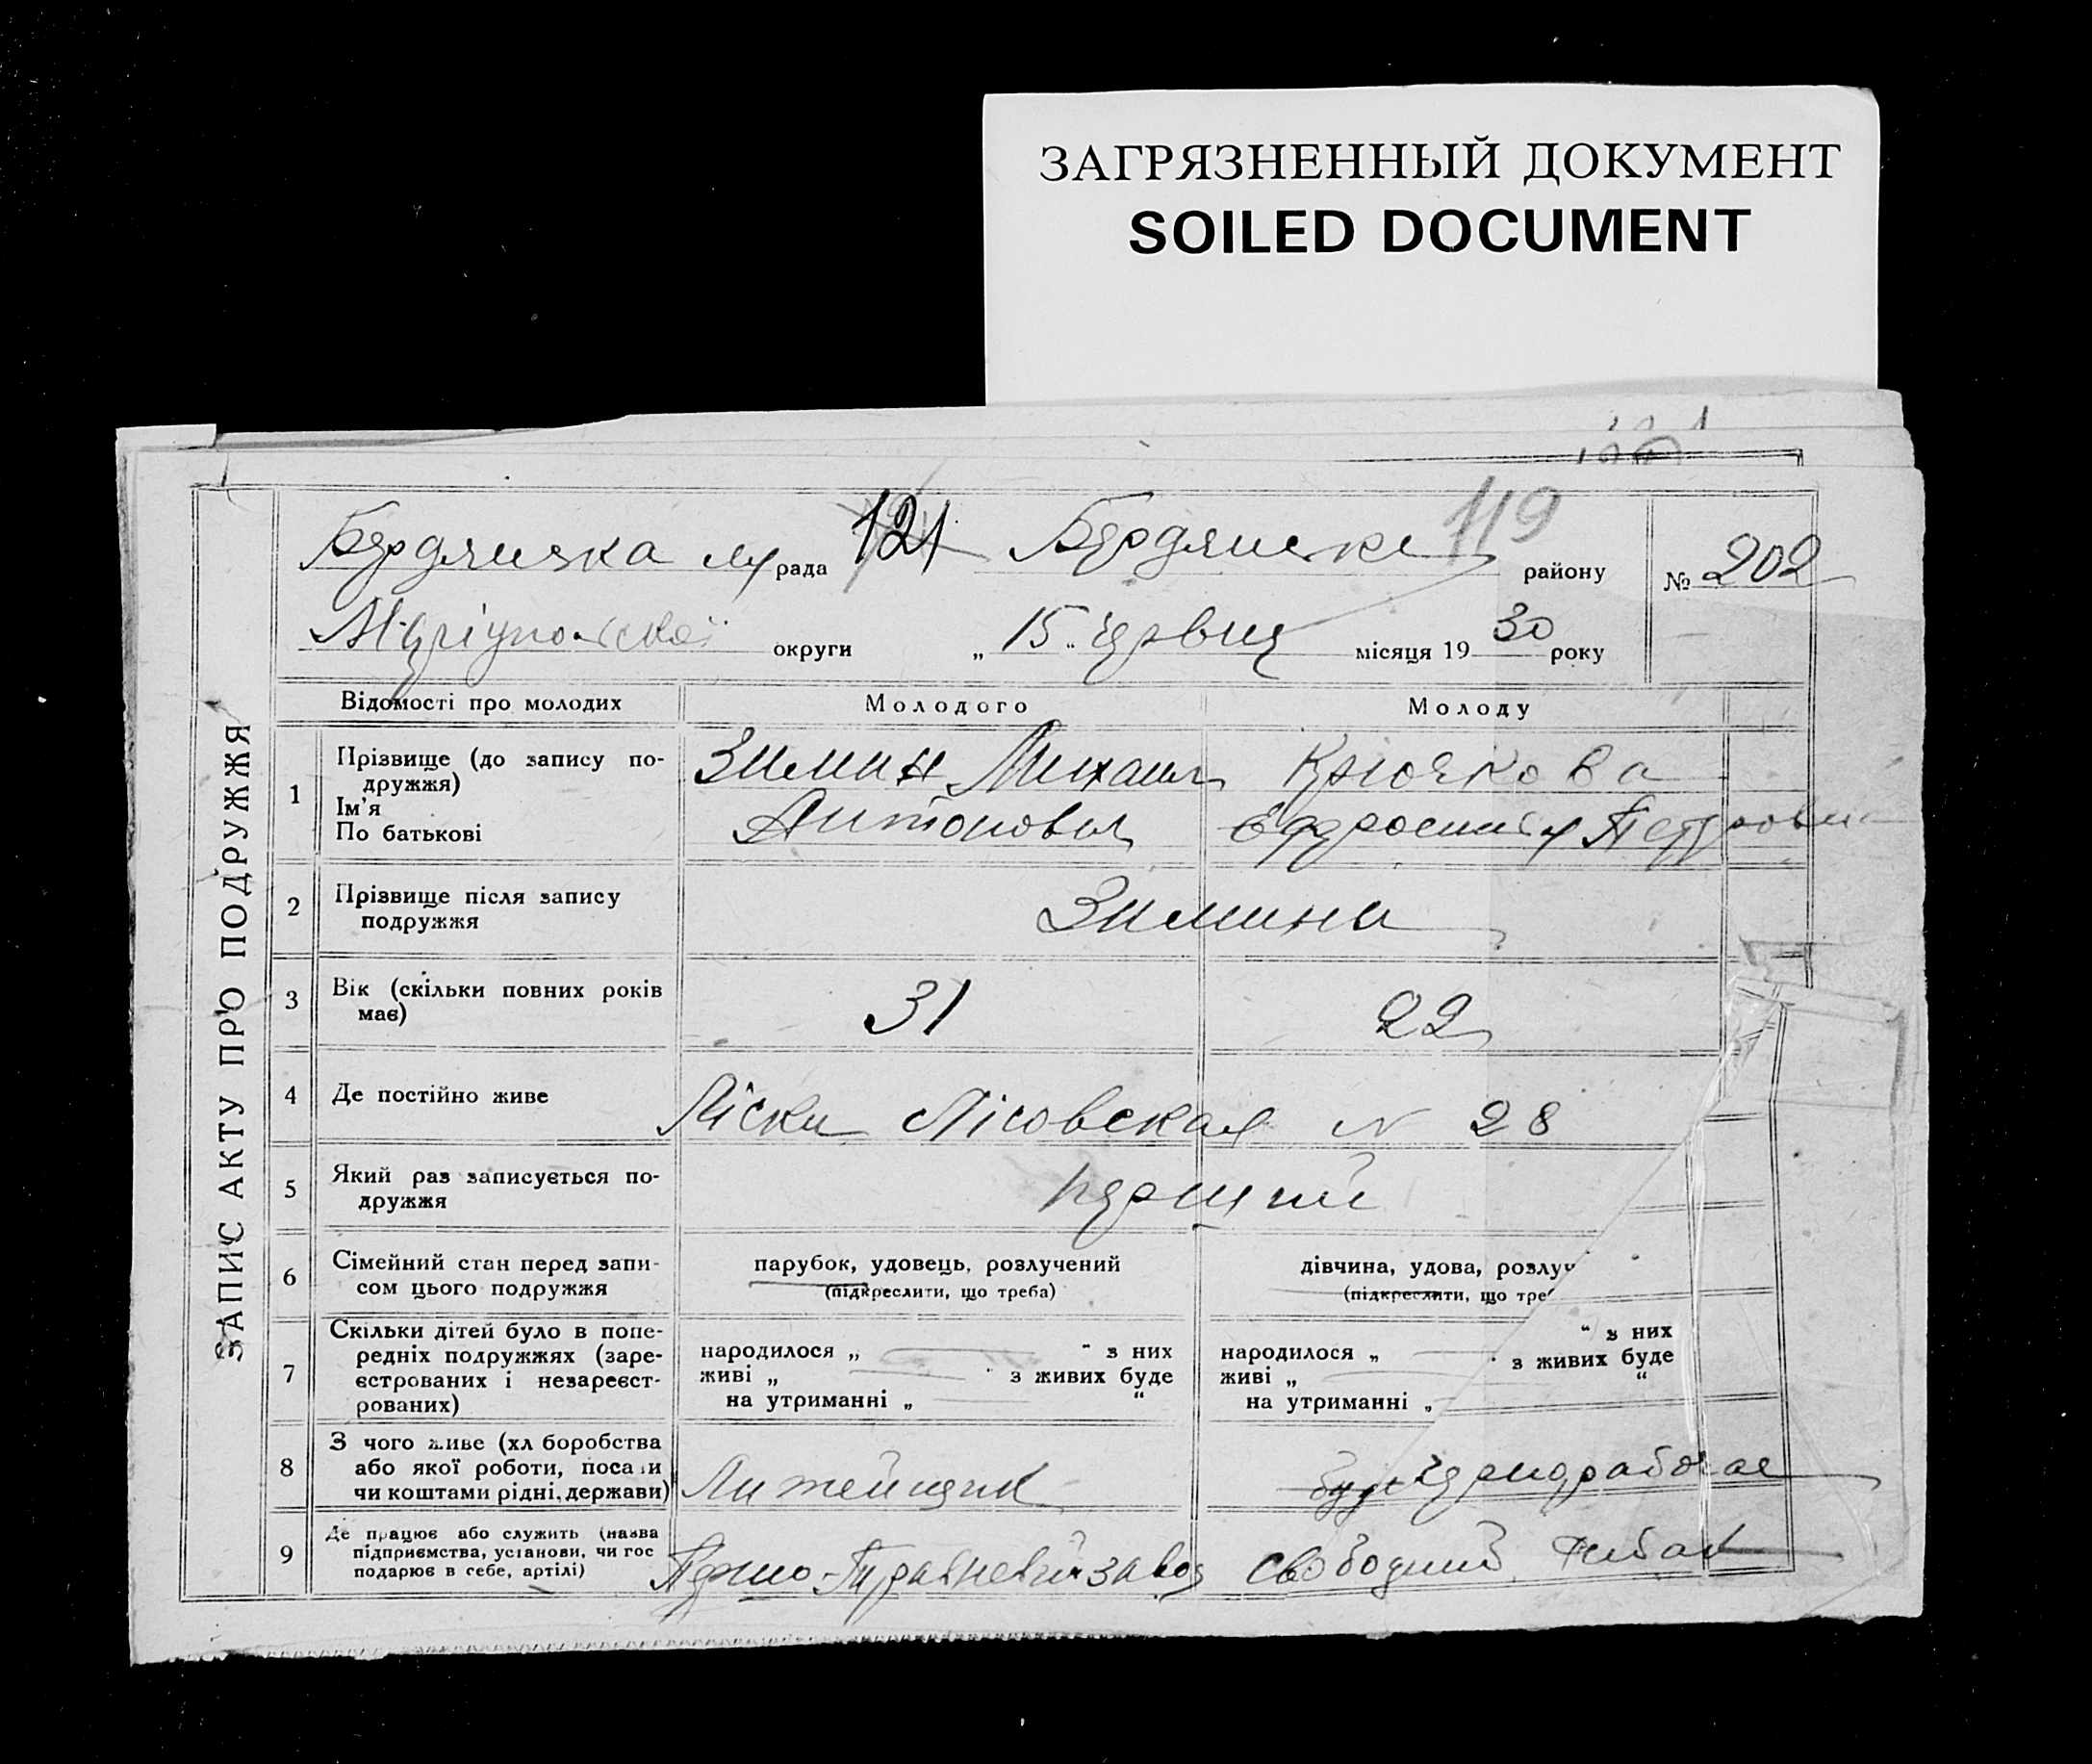 ЗАГРЯЗНЕННЫЙ ДОКУМЕНТ
SOILED DOCUMENT
ЗАПИС АКТУ ПРО ПОДРУЖЖЯ
Бердянська м рада 121 Бердянське 119 району № 202
Маріупольської округи „ 15 " червня місяця 19 30 року
Відомості про молодих Молодого Молоду
1 Прізвище (до запису по-
дружжя)
Ім'я
По батькові
Зимин Михаил
Антонович
Крючкова
Ефросиния Петровна
2 Прізвище після запису
подружжя
Зимина
3 Вік (скільки повних років
має)
31 22
4 Де постійно живе
Ліски Лісовская N 28
5 Який раз записується по-
дружжя
перший
6 Сімейний стан перед запи-
сом цього подружжя
парубок, удовець, розлучений
(підкреслити, що треба)
дівчина, удова, розлуч
(підкреслити, що треб
7 Скільки дітей було в попе-
редніх подружжях (заре-
єстрованих і незареєст-
рованих)
народилося „ " з них
живі „ " з живих буде
на утриманні „ "
народилося „ " з них
живі „ " з живих буде
на утриманні „ "
8 З чого живе (хл боробства
або якої роботи, посади
чи коштами рідні, держави)
Литейщик
чернорабочая
9 Де працює або служить (назва
підприємства, установи, чи гос
подарює в себе, артілі)
Першо-Травневий завод
Свободний рибак